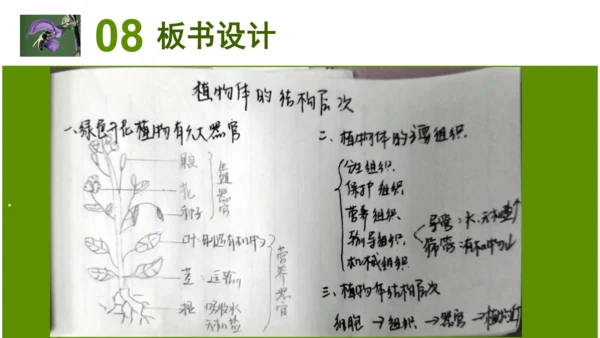 08 板书设计
植物体的结构层次
一、绿色开花植物有六大器官
果
花
种子
生殖器官
叶:制造有机物
茎:运输
根 吸收水
无机盐
营养器官
二、植物体的主要组织
分生组织
保护组织
营养组织
输导组织
机械组织
导管:水、无机盐↑
筛管:有机物↓
三、植物体结构层次
细胞→组织→器官→植物体